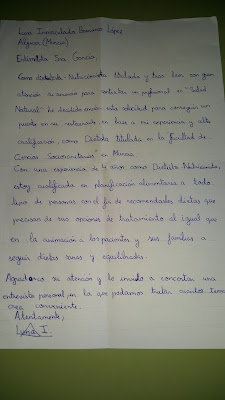 Luna Inmaculada Gomariz López
Alguazas (Murcia)
Estimada Sra. García,
Como dietista-Nutricionista titulada y tras leer con gran
atención su anuncio para solicitar un profesional en "Salud
Natural" he decidido enviar esta solicitud para conseguir un
puesto en su restaurante en base a mi experiencia y alta
cualificación, como Dietista Titulada en la Facultad de
Ciencias Sociosanitarias en Murcia.
Con una experiencia de 4 años como Dietista Nutricionista,
estoy cualificada en planificación alimentaria a todo
tipo de personas con el fin de recomendarles dietas que
precisen de sus opciones de tratamiento al igual que
en la animación a los pacientes y sus familias a
seguir dietas sanas y equilibradas.
Agradezco su atención y le invito a concertar una
entrevista personal en la que podamos tratar cuantos temas
crea conveniente.
Atentamente,